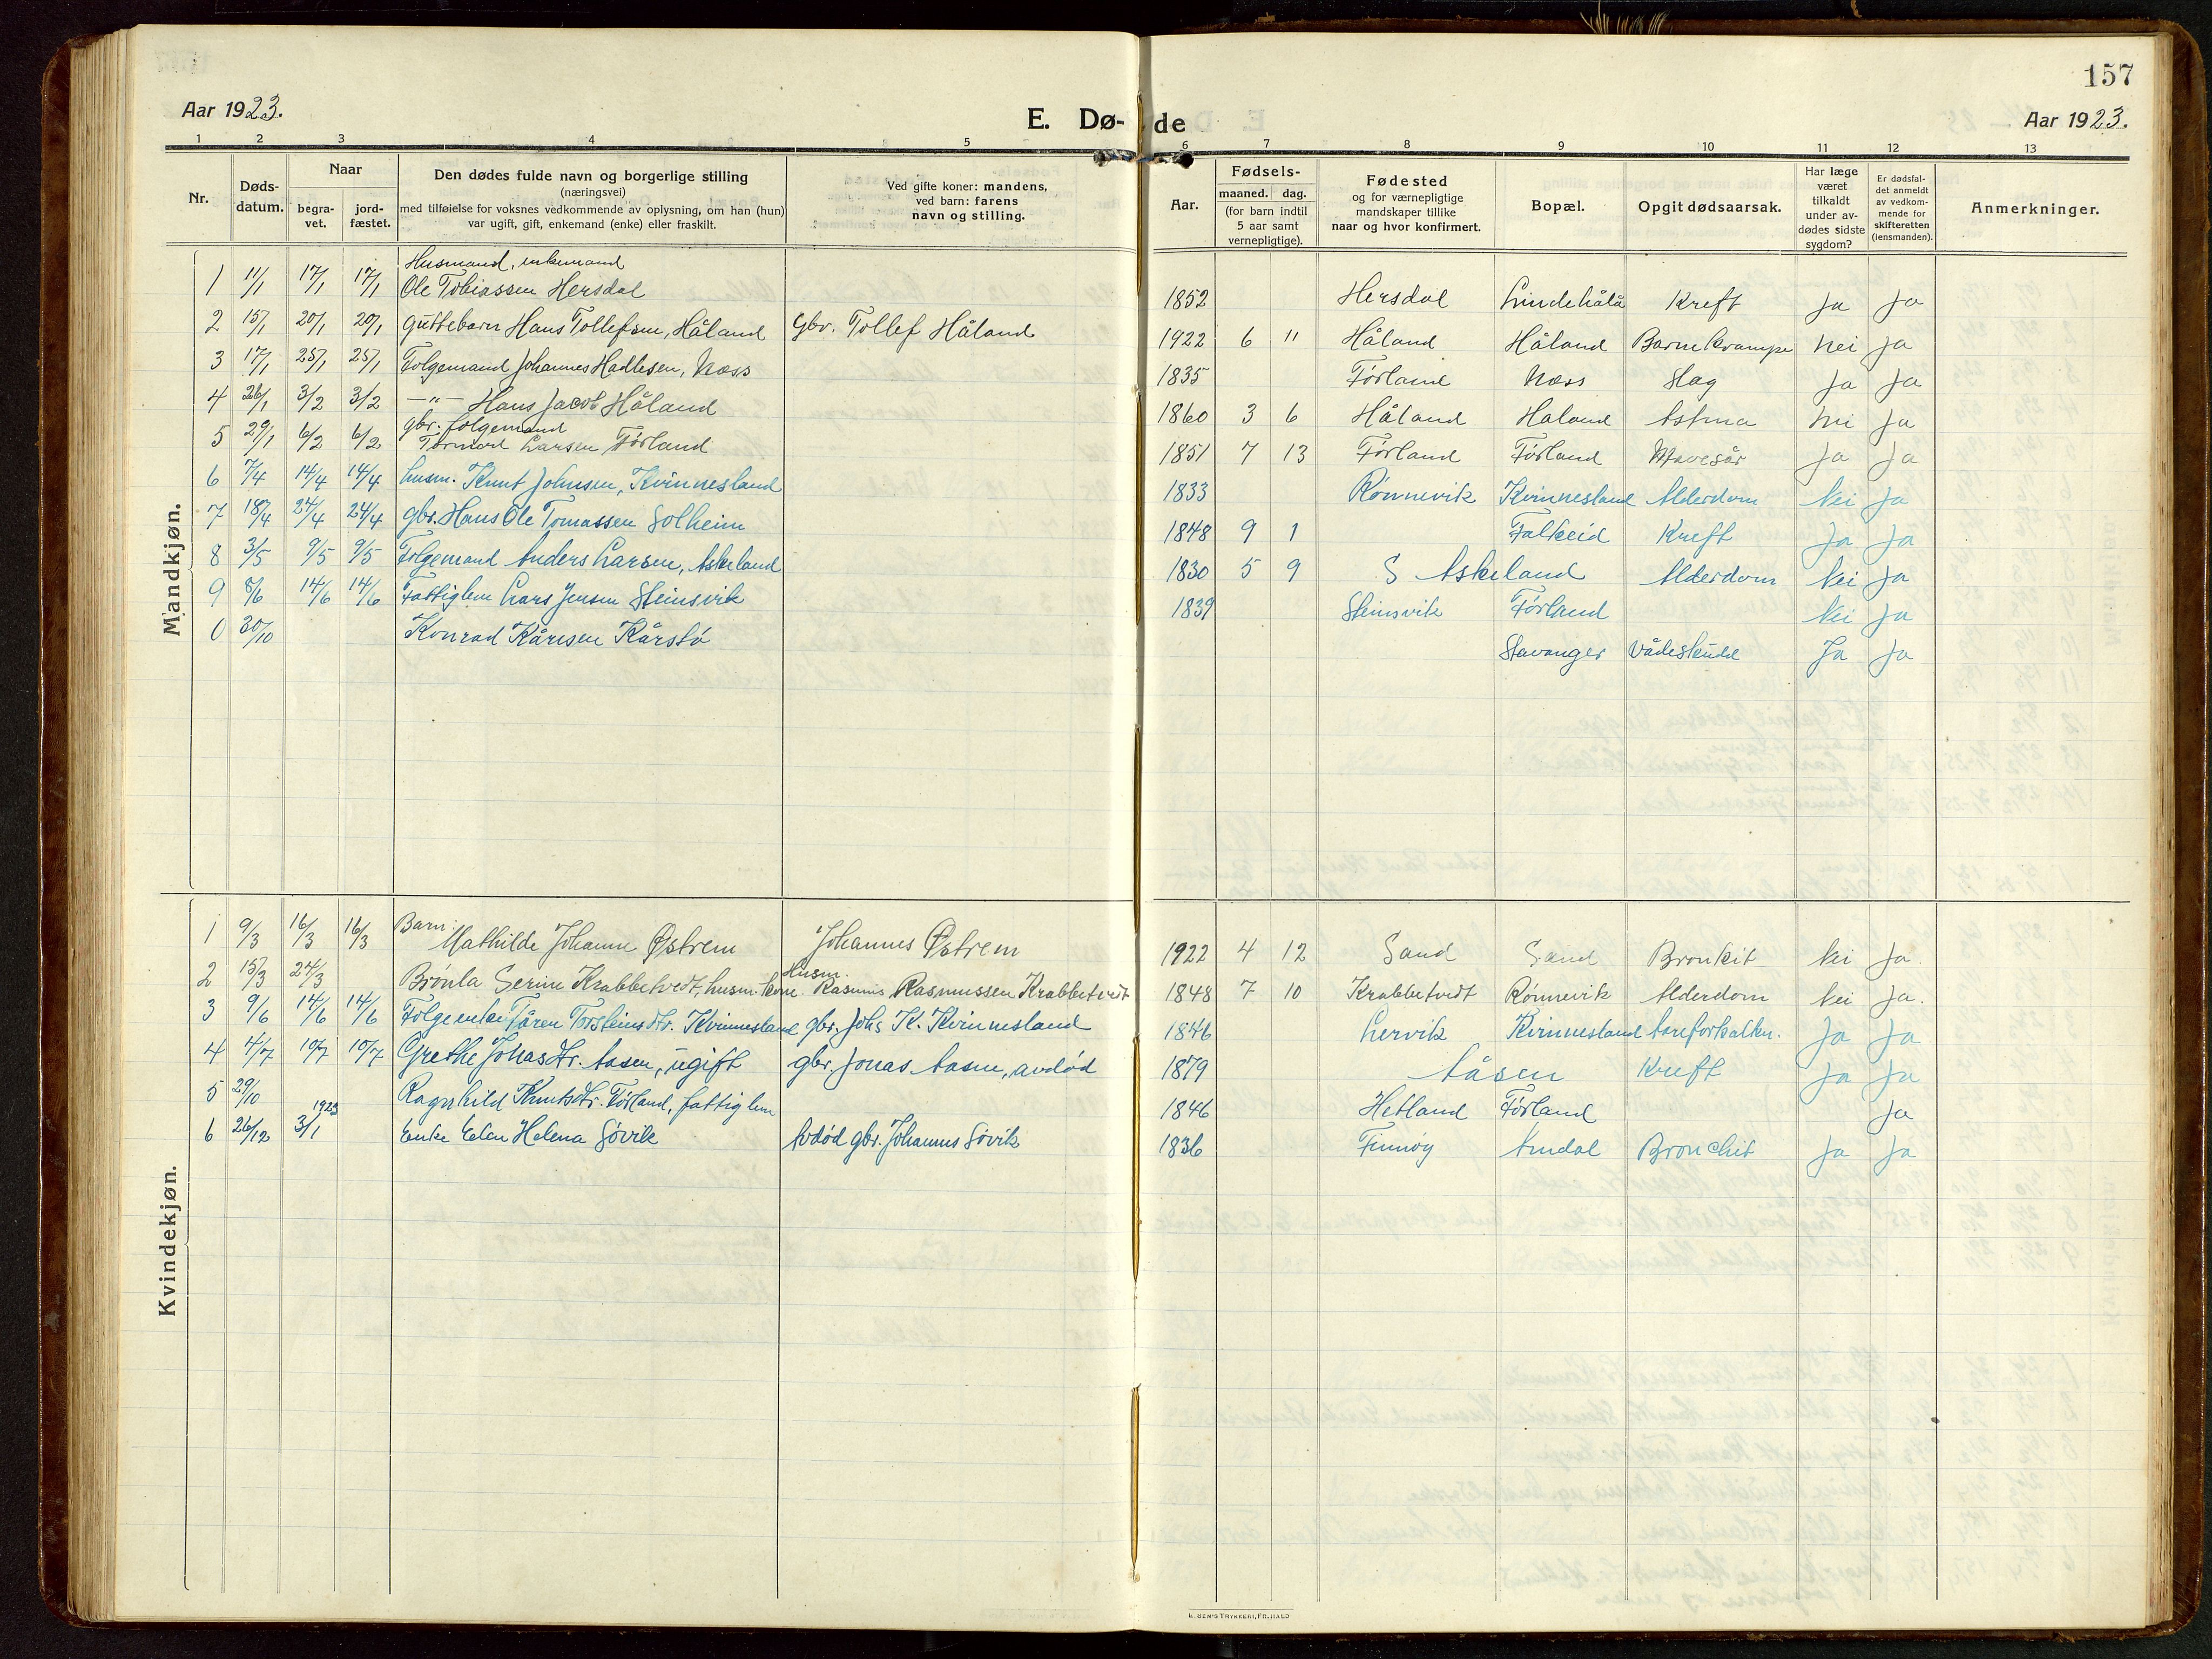 157
Aar 1923.
E. Dø-de
Aar 1923.
1 2 3 4 5 6 7 8 9 10 11 12 13
Nr.
Døds-datum.
Naar
begra-vet.
jord-fæstet.
Den dødes fulde navn og borgerlige stilling
(næringsvei)
med tilføielse for voksnes vedkommende av oplysning, om han (hun)
var ugift, gift, enkemand (enke) eller fraskilt.
Ved gifte koner: mandens,
ved barn: farens
navn og stilling.
Aar.
Fødsels-
maaned. dag.
(for barn indtil
5 aar samt
vernepligtige).
Fødested
og for værnepligtige
mandskaper tillike
naar og hvor konfirmert.
Bopæl.
Opgit dødsaarsak.
Har læge
været
tilkaldt
under av-
dødes sidste
sygdom?
Er dødsfal-
det anmeldt
av vedkom-
mende for
skifteretten
(lensmanden).
Anmerkninger.
Mandkjøn.
Husmand, enkemand
1 11/1 17/1 17/1 Ole Tobiassen Hersdal 1852 Hersdal Lindehålå Kreft Ja Ja
2 15/1 20/1 20/1 Guttebarn Hans Tollefsen, Håland Gbr. Tollef Håland 1922 6 11 Håland Håland Barnekrampe Nei Ja
3 17/1 25/1 25/1 Folgemand Johannes Hadlesen, Næss 1835 Førland Næss Slag Ja Ja
4 26/1 3/2 3/2 —"— Hans Jacob Håland 1860 3 6 Håland Håland Astma Nei Ja
gbr. folgemand
5 29/1 6/2 6/2 Tormod Larsen Førland 1851 7 13 Førland Førland Mavesår Ja Ja
6 7/4 14/4 14/4 husm. Knut Johnsen, Kvinnesland 1833 Rønnevik Kvinnesland Alderdom Nei Ja
7 18/4 24/4 24/4 gbr. Hans Ole Tomassen Solheim 1848 9 1 Falkeid Kreft Ja Ja
8 3/5 9/5 9/5 Folgemand Anders Larsen, Askeland 1830 5 9 S Askeland Alderdom Nei Ja
9 8/6 14/6 14/6 Fattiglem Lars Jensen Steinsvik 1839 Steinsvik Førland Nei Ja
0 30/10 Konrad Kåresen Kårstø Stavanger Vådeskudd Ja Ja
Kvindekjøn.
Barn:
1 9/3 16/3 16/3 Mathilde Johanne Østrem Johannes Østrem 1922 4 12 Sand Sand Bronkit Nei Ja.
Husm.
2 15/3 24/3 Brønla Serine Krabbetvedt, husm. kone Rasmus Rasmussen Krabbetvedt 1848 7 10 Krabbetvedt Rønnevik Alderdom Nei Ja.
3 9/6 14/6 14/6 Folgeenke Tåren Torsteinsdtr. Kvinnesland gbr. Johs K. Kvinnesland 1846 Lervik Kvinnesland Åreforkalkn. Ja Ja
4 4/7 10/7 10/7 Grethe Jonasdtr. Aasen, ugift gbr. Jonas Aasen, avdød 1879 Aåsen Kreft Ja Ja
5 29/10 Ragnhild Knutsdtr. Førland, fattiglem 1846 Hetland Førland Ja
1923
6 26/12 3/1 Enke Elen Helena Søvik Avdød gbr. Johannes Søvik 1836 Finnøy Amdal Bronchit Ja Ja
E. SEM'S TRYKKERI, FR.HALD